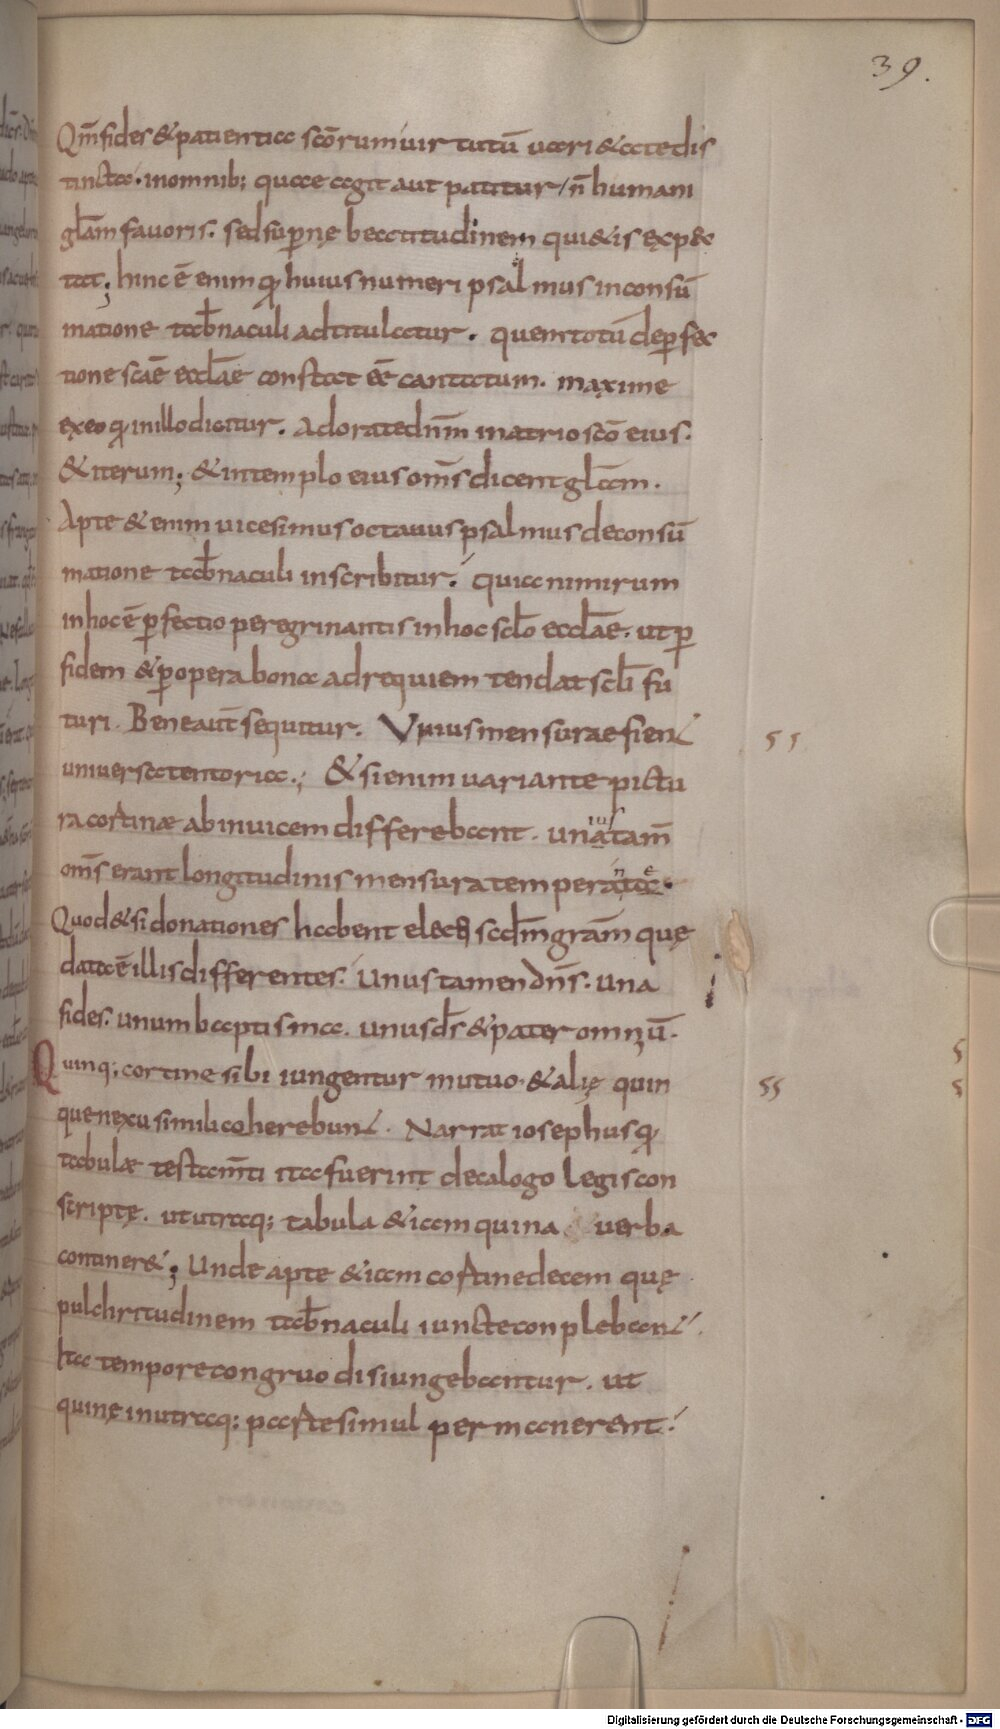 39.
Qm̄ fides & patientia scōrum uirtutū uari&ate dis
tincta. in omnib; quae agit aut patitur / n̄ humani
glām fauoris. sed supernę beatitudinem qui&is exp&
tat; hinc ē enim qđ huius numeri psalmus in consū
matione tab̄naculi adtitulatur. quem totū de p̄fec
tione scāe ecclāe constat eē cantatum. maxime
ex eo qđ in illo dicitur. Adorate dn̄m in atrio scō eius.
& iterum; & in templo eius om̄s dicent glām.
Apte & enim uicesimus octauus psalmus de consū
matione tab̄naculi inscribitur. quia nimirum
in hoc ē p̄fectio peregrinantis in hoc scl̄o ecclāe. ut p̄
fidem & p̄ opera bona ad requiem tendat scl̄i fu
turi. Bene aūt sequitur. Unius mensurae fient
uniuersa tentoria.; & si enim uariante pictu
ra cortinæ ab inuicem differebant. unius tam̄
om̄s erant longitudinis mensura temperantę.
Quod & si donationes habent electi scdm̄ grām quę
data ē illis differentes. Unus tamen dn̄s. una
fides. unum baptisma. unus ds̄ & pater omniū.
Quinq; cortine sibi iungentur mutuo. & alię quin
que nexu simili coherebunt. Narrat iosephus qđ
tabulæ testam̄ti ita fuerint decalogo legis con
scriptę. ut utraq; tabula & iam quina uerba
contineret; Unde apte & iam cortine decem quę
pulchritudinem tab̄naculi iuncte conplebant
ita tempore congruo disiungebantur. ut
quinę in utraq; parte simul permanerent.
Digitalisierung gefördert durch die Deutsche Forschungsgemeinschaft - DFG